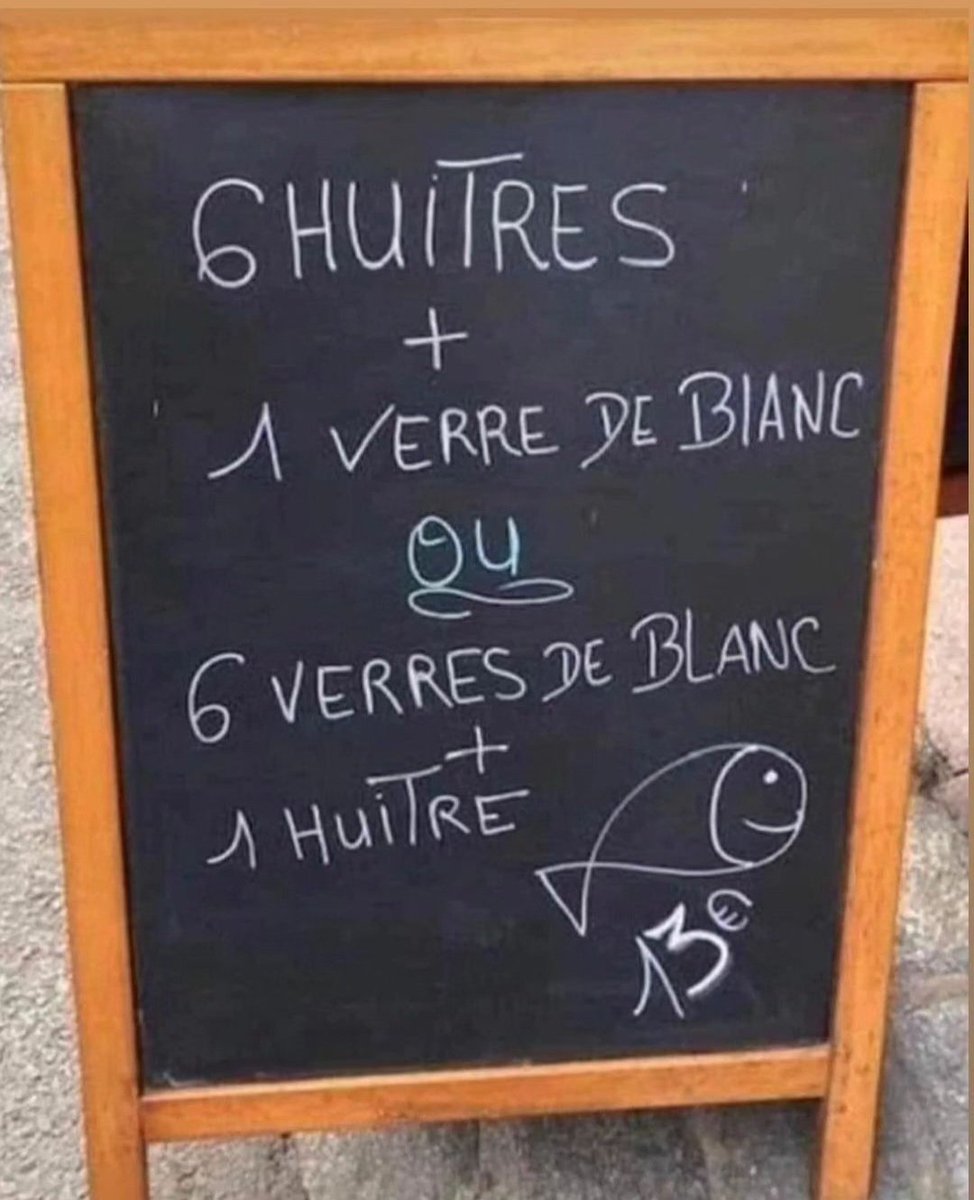 6 HUiTRES
+
1 VERRE DE BlANC
OU
6 VERRES DE BLANC
+
1 HUiTRE
13€